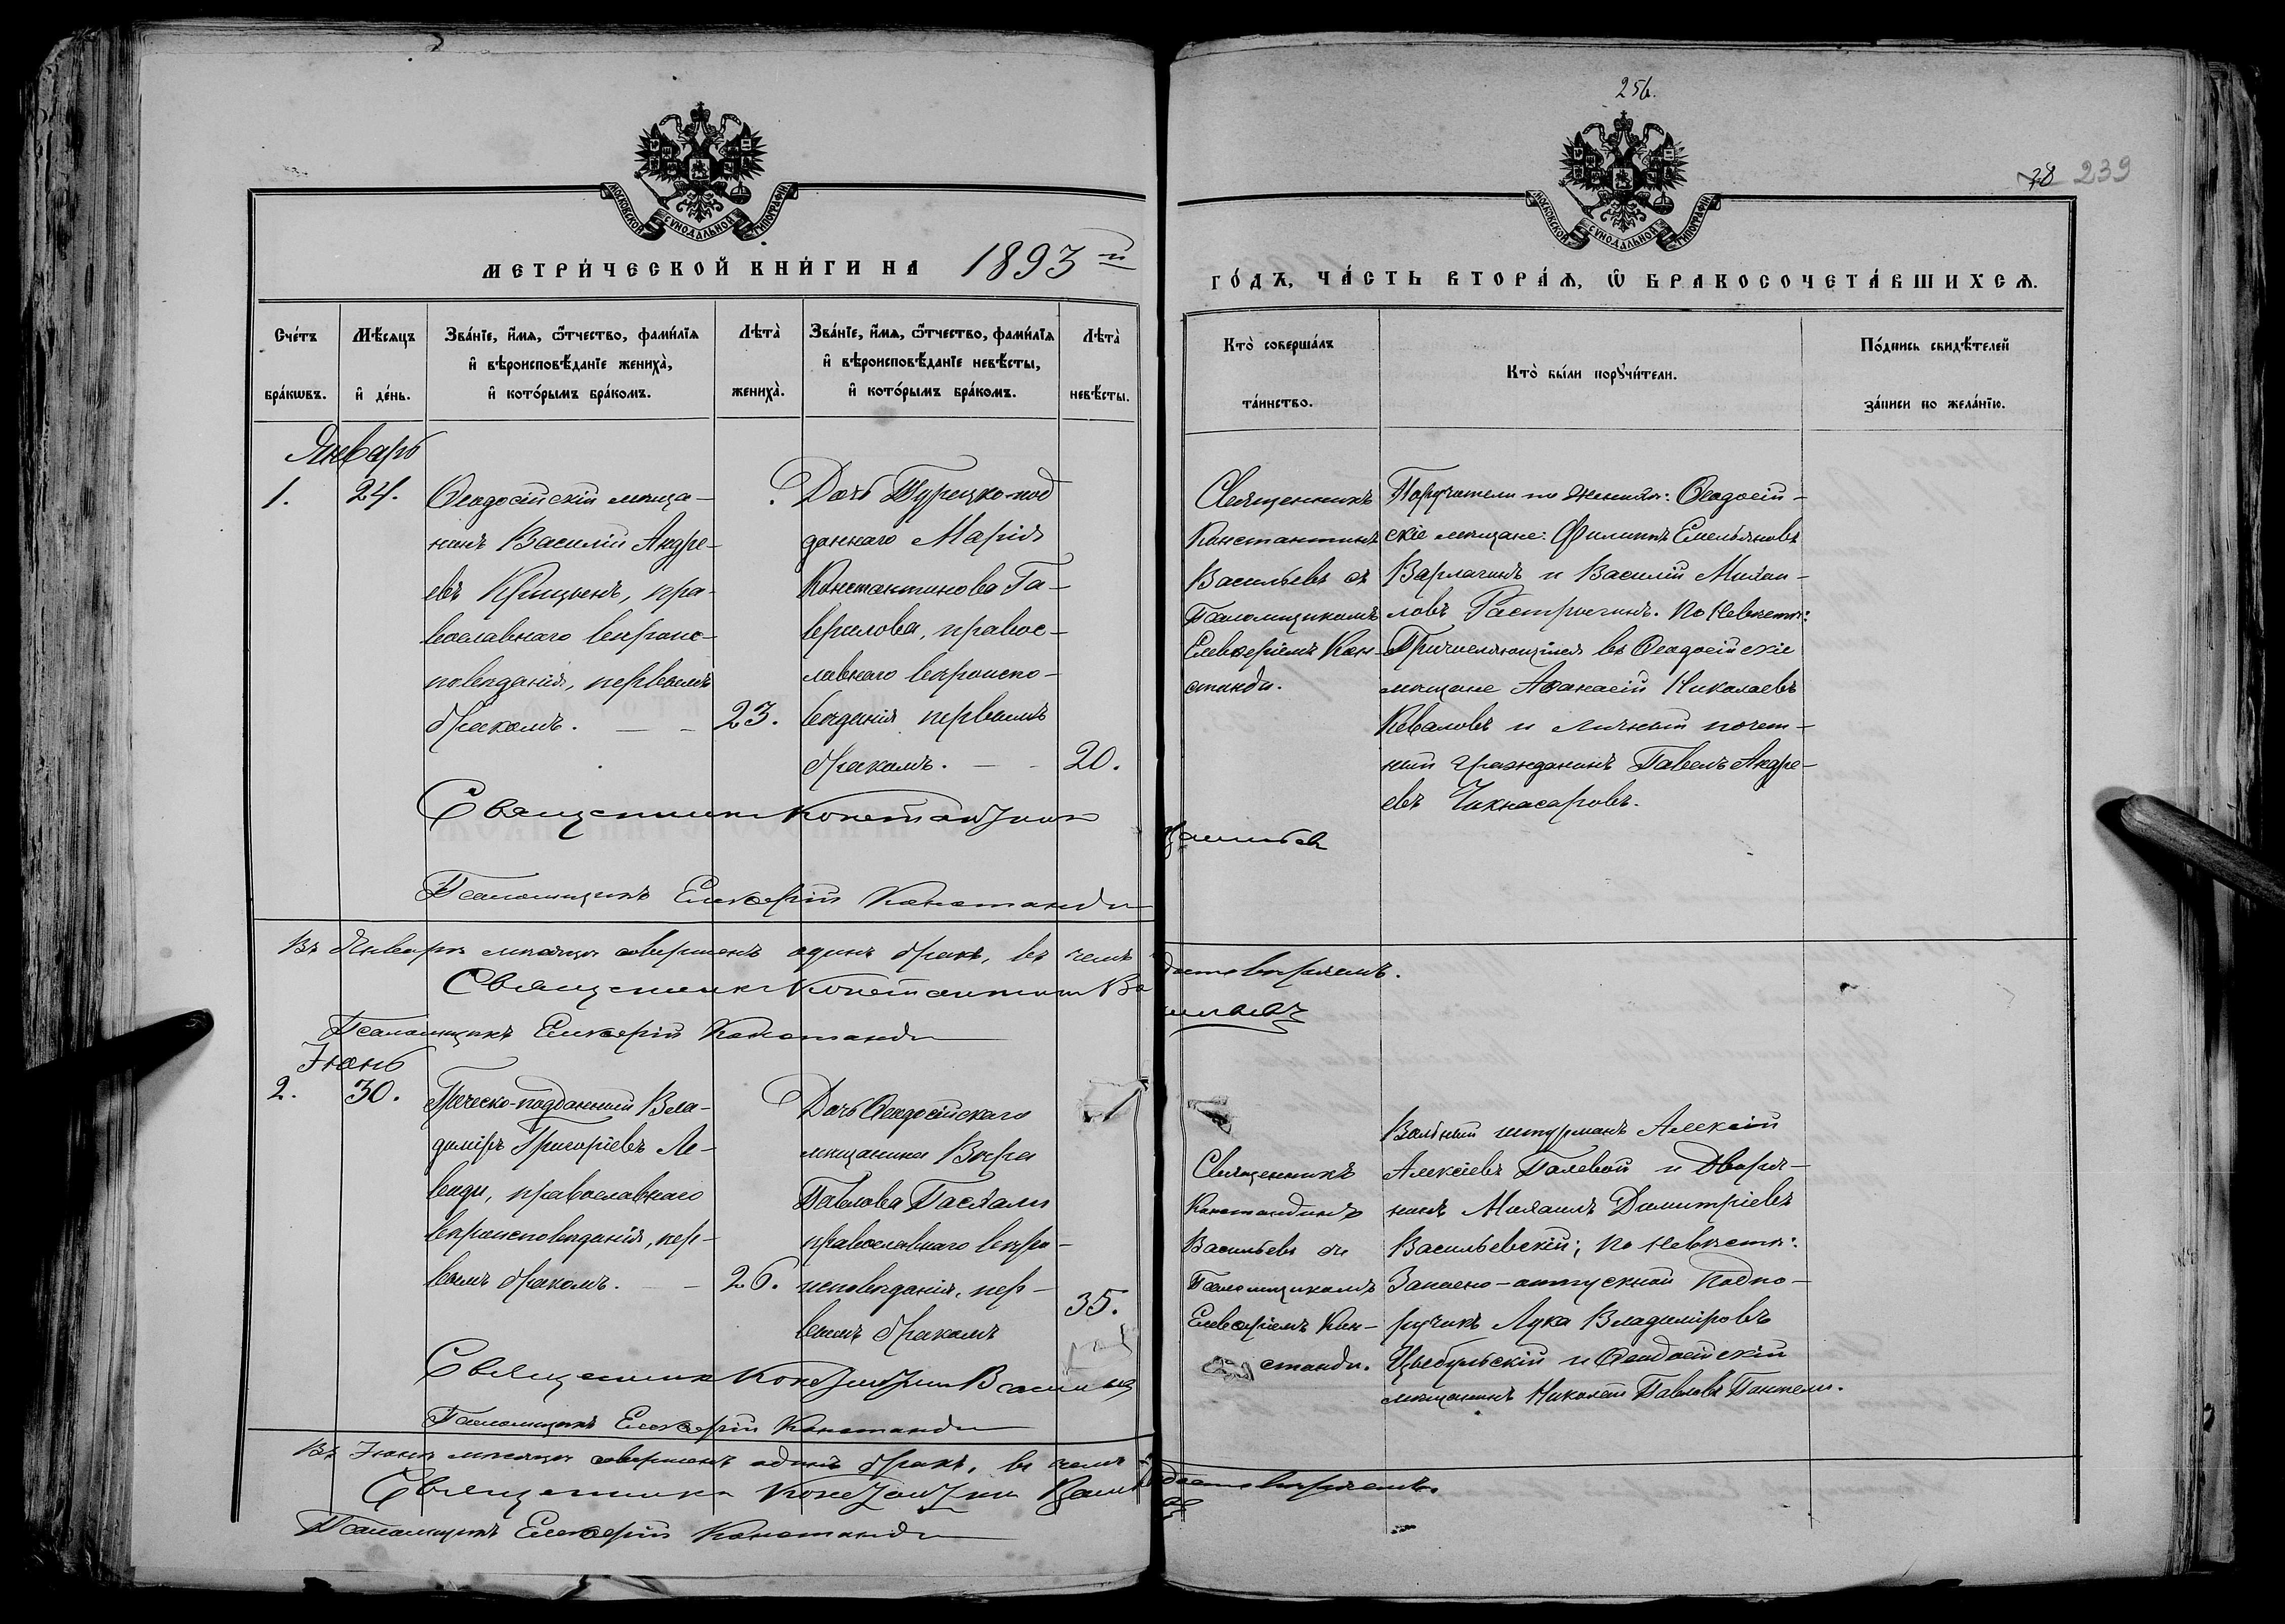 256.
78 239
МОСКОВСКОЙ СѴНОДАЛЬНОЙ ТИПОГРАФІИ
МОСКОВСКОЙ СѴНОДАЛЬНОЙ ТИПОГРАФІИ
МЕТРИ́ЧЕСКОЙ КНИ́ГИ НА 1893й
ГО́ДЪ, ЧА́СТЬ ВТОРА́Ѧ, Ѽ БРАКОСОЧЕТА́ВШИХСѦ.
Сче́тъ бра́кѡвъ.
Мѣ́сѧцъ и҆ де́нь.
Зва́нїе, и҆́мѧ, ѻ҆́тчество, фами́лїѧ
и҆ вѣроисповѣ́данїе жениха̀,
и҆ кото́рымъ бра́комъ.
Лѣта̀ жениха̀.
Зва́нїе, и҆́мѧ, ѻ҆́тчество, фами́лїѧ
и҆ вѣроисповѣ́данїе невѣ́сты,
и҆ кото́рымъ бра́комъ.
Лѣта̀ невѣ́сты.
Кто̀ соверша́лъ
та́инство.
Кто̀ бы́ли порꙋчи́тели.
По́дпись свидѣ́телей
за́писи по жела́нїю.
Январь
1.
24.
Ѳеодосійскій мѣща-
нинъ Василій Андре-
евъ Крицынъ, пра-
вославнаго вѣроис-
повѣданія, первымъ
бракомъ.
23.
Дочь Турецко-под
даннаго Марія
Константинова Га-
врилова, правос-
лавнаго вѣроиспо-
вѣданія первымъ
бракомъ.
20.
Священникъ
Константинъ
Васильевъ съ
Псаломщикомъ
Елевѳеріемъ Кон-
станди.
Поручители по женихѣ: Ѳеодосій-
скіе мѣщане: Филиппъ Емельяновъ
Варлагинъ и Василій Михаи-
ловъ Растригинъ. По невѣстѣ:
Причисляющійся въ Ѳеодосійскіе
мѣщане Аѳанасій Николаевъ
Коваловъ и личный почет-
ный гражданинъ Павелъ Андре-
евъ Чикнасаровъ.
Священникъ Константинъ Васильевъ
Псаломщикъ Елевѳерій Констанди
Въ Январѣ мѣсяцѣ совершенъ одинъ бракъ, въ чемъ удостовѣряемъ.
Священникъ Константинъ Васильевъ
Псаломщикъ Елевѳерій Констанди
Іюнь
2.
30.
Греческо-подданный Вла-
диміръ Григоріевъ Ле-
венди, православнаго
вѣроисповѣданія, пер-
вымъ бракомъ.
26.
Дочь Ѳеодосійскаго
мѣщанина Вѣра
Павлова Пасхали
православнаго вѣро-
исповѣданія, пер-
вымъ бракомъ
35.
Священникъ
Константинъ
Васильевъ съ
Псаломщикомъ
Елевѳеріемъ Кон-
станди.
Вольный штурманъ Алексій
Алексіевъ Палевой и Дворя-
нинъ Михаилъ Димитріевъ
Васильевскій; по невѣстѣ:
Запасно-отпускной Подпо-
ручикъ Лука Владиміровъ
Цыбульскій и Ѳеодосійскій
мѣщанинъ Николай Павловъ Пантели.
Священникъ Константинъ Васильевъ
Псаломщикъ Елевѳерій Констанди
Въ Іюнѣ мѣсяцѣ совершенъ одинъ бракъ, въ чемъ удостовѣряемъ.
Священникъ Константинъ Васильевъ
Псаломщикъ Елевѳерій Констанди